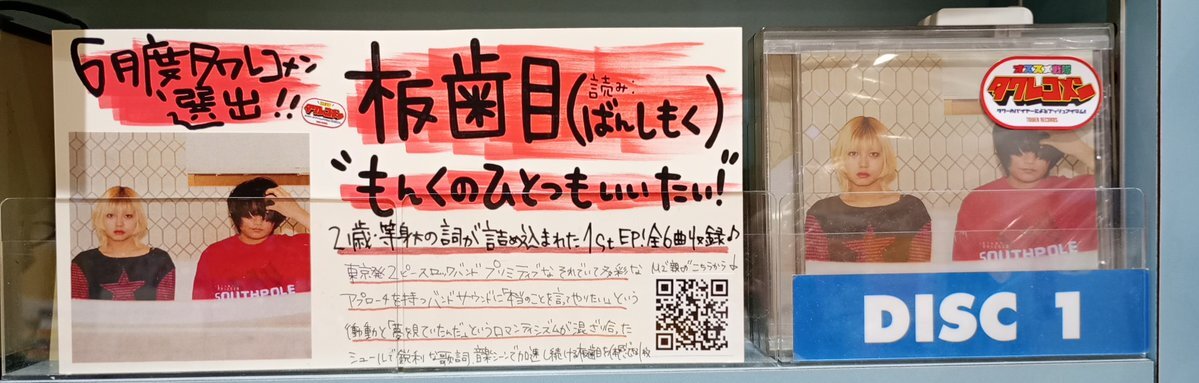 6月度タワレコメン
選出!!
板歯目(読み:ばんしもく)
"もんくのひとつもいいたい!"
21歳・等身大の詞が詰め込まれた1st EP!全6曲収録♪
東京発2ピースロックバンド プリミティブな それでいて多彩な
アプローチを持つバンドサウンドに「本当のことを言ってやりたい」という
衝動と「夢を見ていたんだ」というロマンティシズムが混ざり合った
シュールで鋭利な歌詞 音楽シーンで加速し続ける板歯目
MV観がこちらから↓
SOUTHPOLE
オススメ戦隊
タワレコメン
TOWER RECORDS
SOUTHPOLE
DISC 1